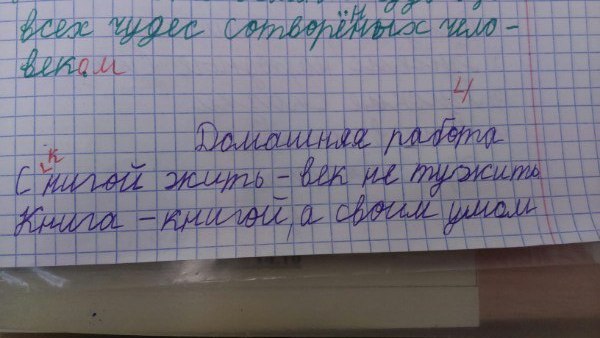 всех чудес сотворёных чело-
веком
4
Домашняя работа
С книгой жить - век не тужить
Книга - книгой, а своим умом